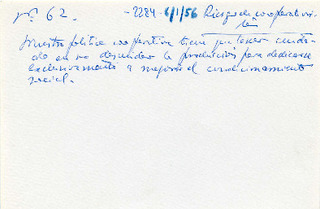 nº 62. -2284- 6/1/56 Riesgo de cooperativis-
ta
Nuestra política cooperativa tiene que tener cuida-
do en no descuidar la producción para dedicarse
exclusivamente a mejorar el condicionamiento
social.